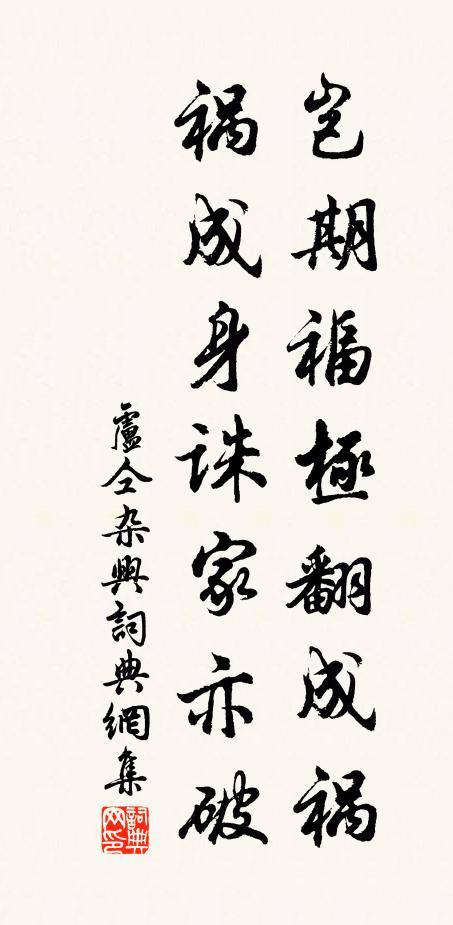 岂期福極翻成祸
祸成身诛家亦破
盧仝杂興詞典網集
詞典网印